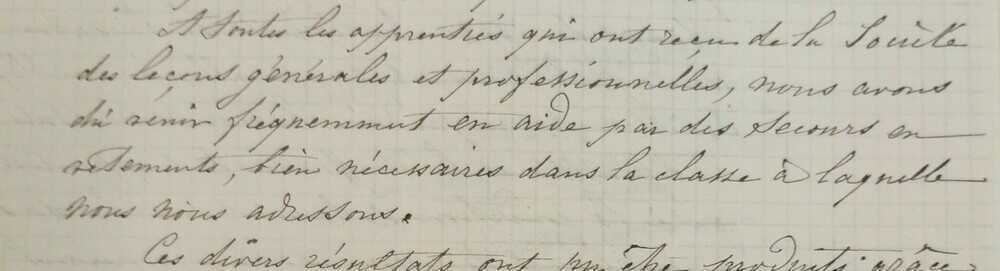 A toutes les apprenties qui ont reçu de la Société
des leçons générales et professionnelles, nous avons
dû venir fréquemment en aide par des secours en
vêtements, bien nécessaires dans la classe à laquelle
nous nous adressons.
Ces divers résultats ont pu être produits grâce